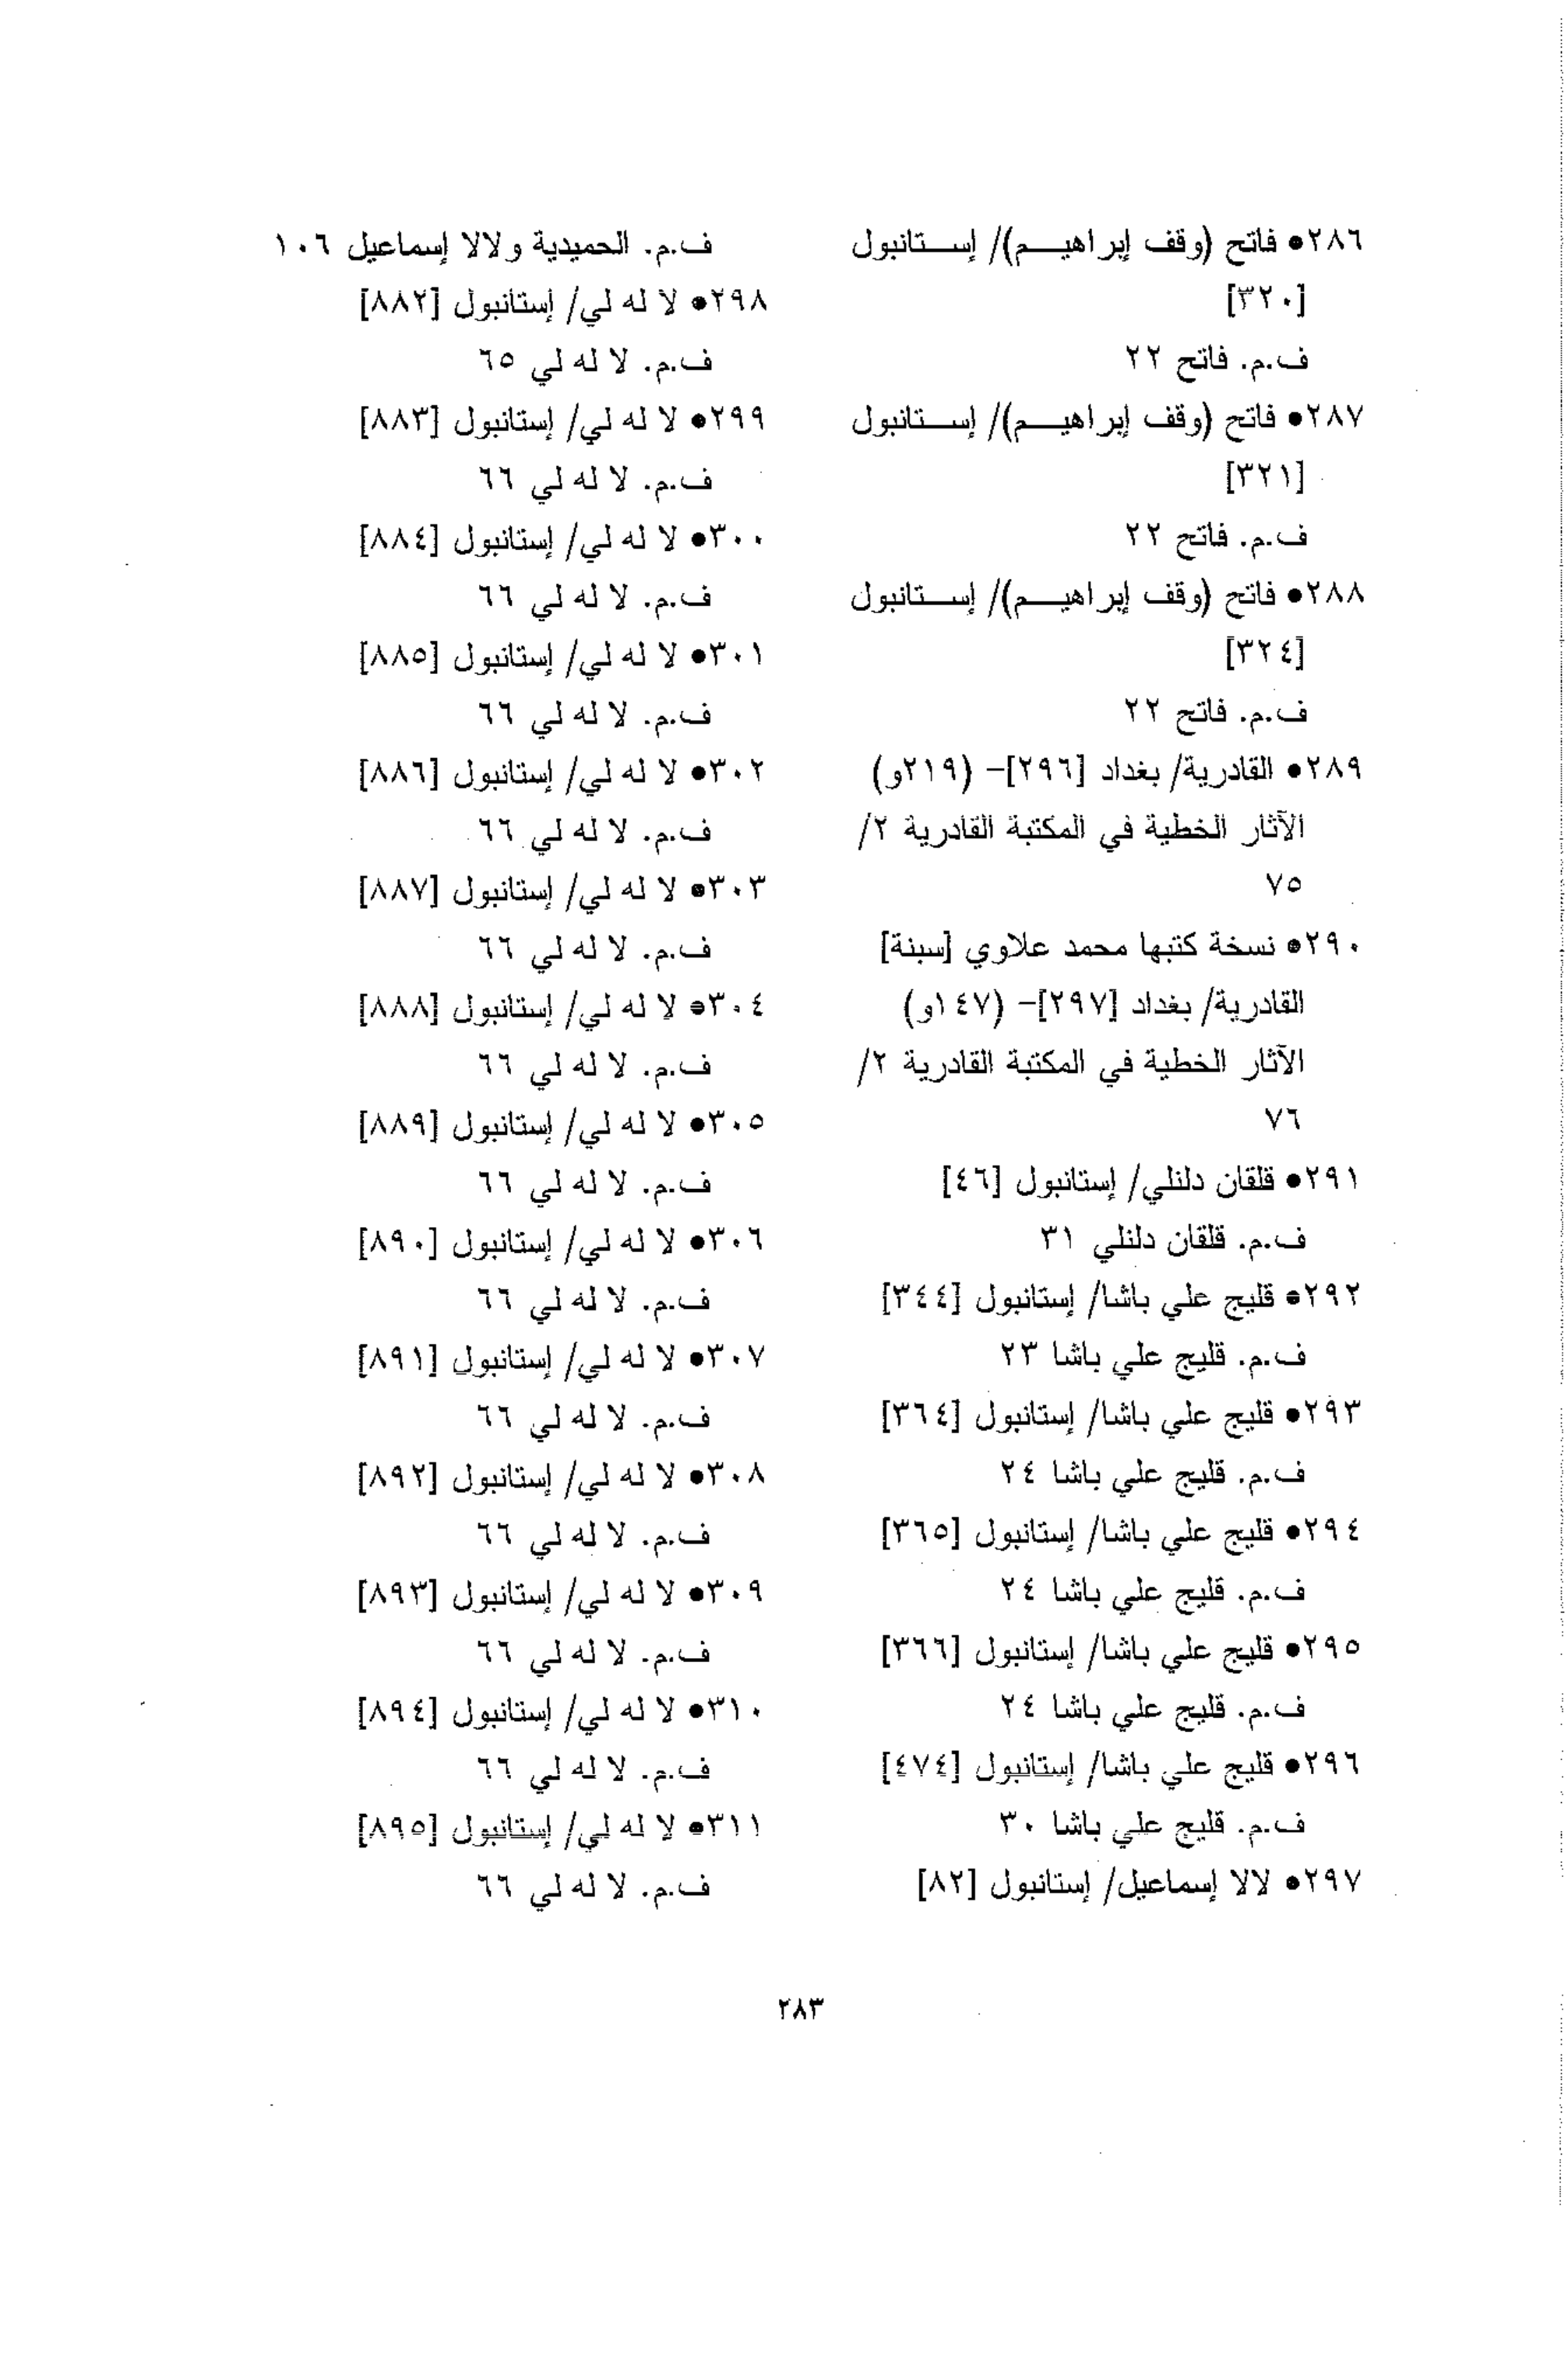 ٢٨٦● فاتح (وقف إبراهيـــم)/ إســـتانبول
[٣٢٠]
ف.م. فاتح ٢٢
٢٨٧● فاتح (وقف إبراهيـــم)/ إســـتانبول
[٣٢١]
ف.م. فاتح ٢٢
٢٨٨● فاتح (وقف إبراهيـــم)/ إســـتانبول
[٣٢٤]
ف.م. فاتح ٢٢
٢٨٩● القادرية/ بغداد [٢٩٦]- (٢١٩و)
الآثار الخطية في المكتبة القادرية ٢/
٧٥
٢٩٠● نسخة كتبها محمد علاوي [سبنة]
القادرية/ بغداد [٢٩٧]- (١٤٧و)
الآثار الخطية في المكتبة القادرية ٢/
٧٦
٢٩١● قلقان دلنلي/ إستانبول [٤٦]
ف.م. قلقان دلنلي ٣١
٢٩٢● قليج علي باشا/ إستانبول [٣٤٤]
ف.م. قليج علي باشا ٢٣
٢٩٣● قليج علي باشا/ إستانبول [٣٦٤]
ف.م. قليج علي باشا ٢٤
٢٩٤● قليج علي باشا/ إستانبول [٣٦٥]
ف.م. قليج علي باشا ٢٤
٢٩٥● قليج علي باشا/ إستانبول [٣٦٦]
ف.م. قليج علي باشا ٢٤
٢٩٦● قليج علي باشا/ إستانبول [٤٧٤]
ف.م. قليج علي باشا ٣٠
٢٩٧● لالا إسماعيل/ إستانبول [٨٢]
ف.م. الحميدية ولالا إسماعيل ١٠٦
٢٩٨● لا له لي/ إستانبول [٨٨٢]
ف.م. لا له لي ٦٥
٢٩٩● لا له لي/ إستانبول [٨٨٣]
ف.م. لا له لي ٦٦
٣٠٠● لا له لي/ إستانبول [٨٨٤]
ف.م. لا له لي ٦٦
٣٠١● لا له لي/ إستانبول [٨٨٥]
ف.م. لا له لي ٦٦
٣٠٢● لا له لي/ إستانبول [٨٨٦]
ف.م. لا له لي ٦٦
٣٠٣● لا له لي/ إستانبول [٨٨٧]
ف.م. لا له لي ٦٦
٣٠٤● لا له لي/ إستانبول [٨٨٨]
ف.م. لا له لي ٦٦
٣٠٥● لا له لي/ إستانبول [٨٨٩]
ف.م. لا له لي ٦٦
٣٠٦● لا له لي/ إستانبول [٨٩٠]
ف.م. لا له لي ٦٦
٣٠٧● لا له لي/ إستانبول [٨٩١]
ف.م. لا له لي ٦٦
٣٠٨● لا له لي/ إستانبول [٨٩٢]
ف.م. لا له لي ٦٦
٣٠٩● لا له لي/ إستانبول [٨٩٣]
ف.م. لا له لي ٦٦
٣١٠● لا له لي/ إستانبول [٨٩٤]
ف.م. لا له لي ٦٦
٣١١● لا له لي/ إستانبول [٨٩٥]
ف.م. لا له لي ٦٦
٢٨٣